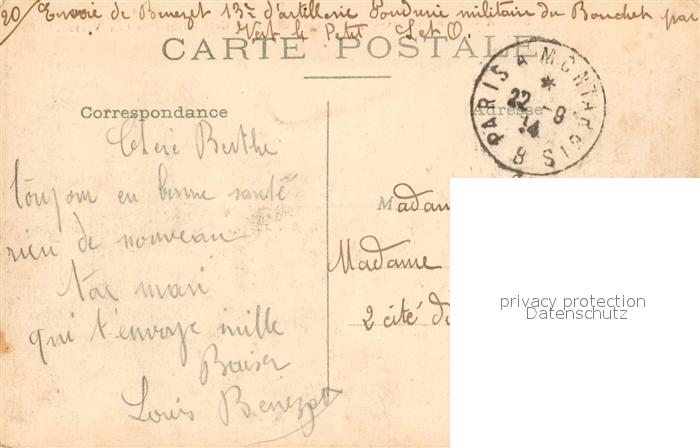 20/ Envoie de Benezet 13e d'artillerie Poudrerie militaire du Bouchet par
Vert le Petit S et O.
CARTE POSTALE
Correspondance
Adresse
PARIS A MONTARGIS
22 - 9
14
B
Chere Berthe
toujour en bonne santé
rien de nouveau
Ton mari
qui t'envoye mille
Baiser
Louis Benezet
Madam
Madame
2 cité d
privacy protection
Datenschutz